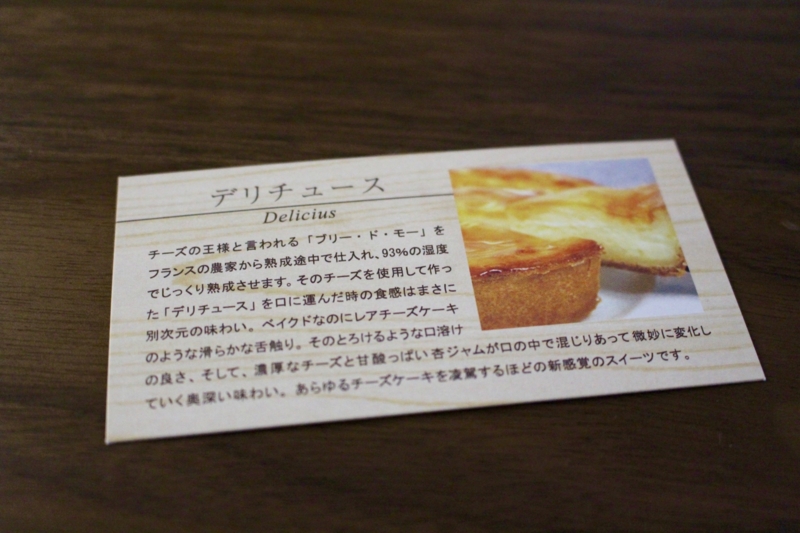 デリチュース
Delicius
チーズの王様と言われる「ブリー・ド・モー」を
フランスの農家から熟成途中で仕入れ、93%の湿度
でじっくり熟成させます。そのチーズを使用して作っ
た「デリチュース」を口に運んだ時の食感はまさに
別次元の味わい。ベイクドなのにレアチーズケーキ
のような滑らかな舌触り。そのとろけるような口溶け
の良さ、そして、濃厚なチーズと甘酸っぱい杏ジャムが口の中で混じりあって微妙に変化し
ていく奥深い味わい。あらゆるチーズケーキを凌駕するほどの新感覚のスイーツです。